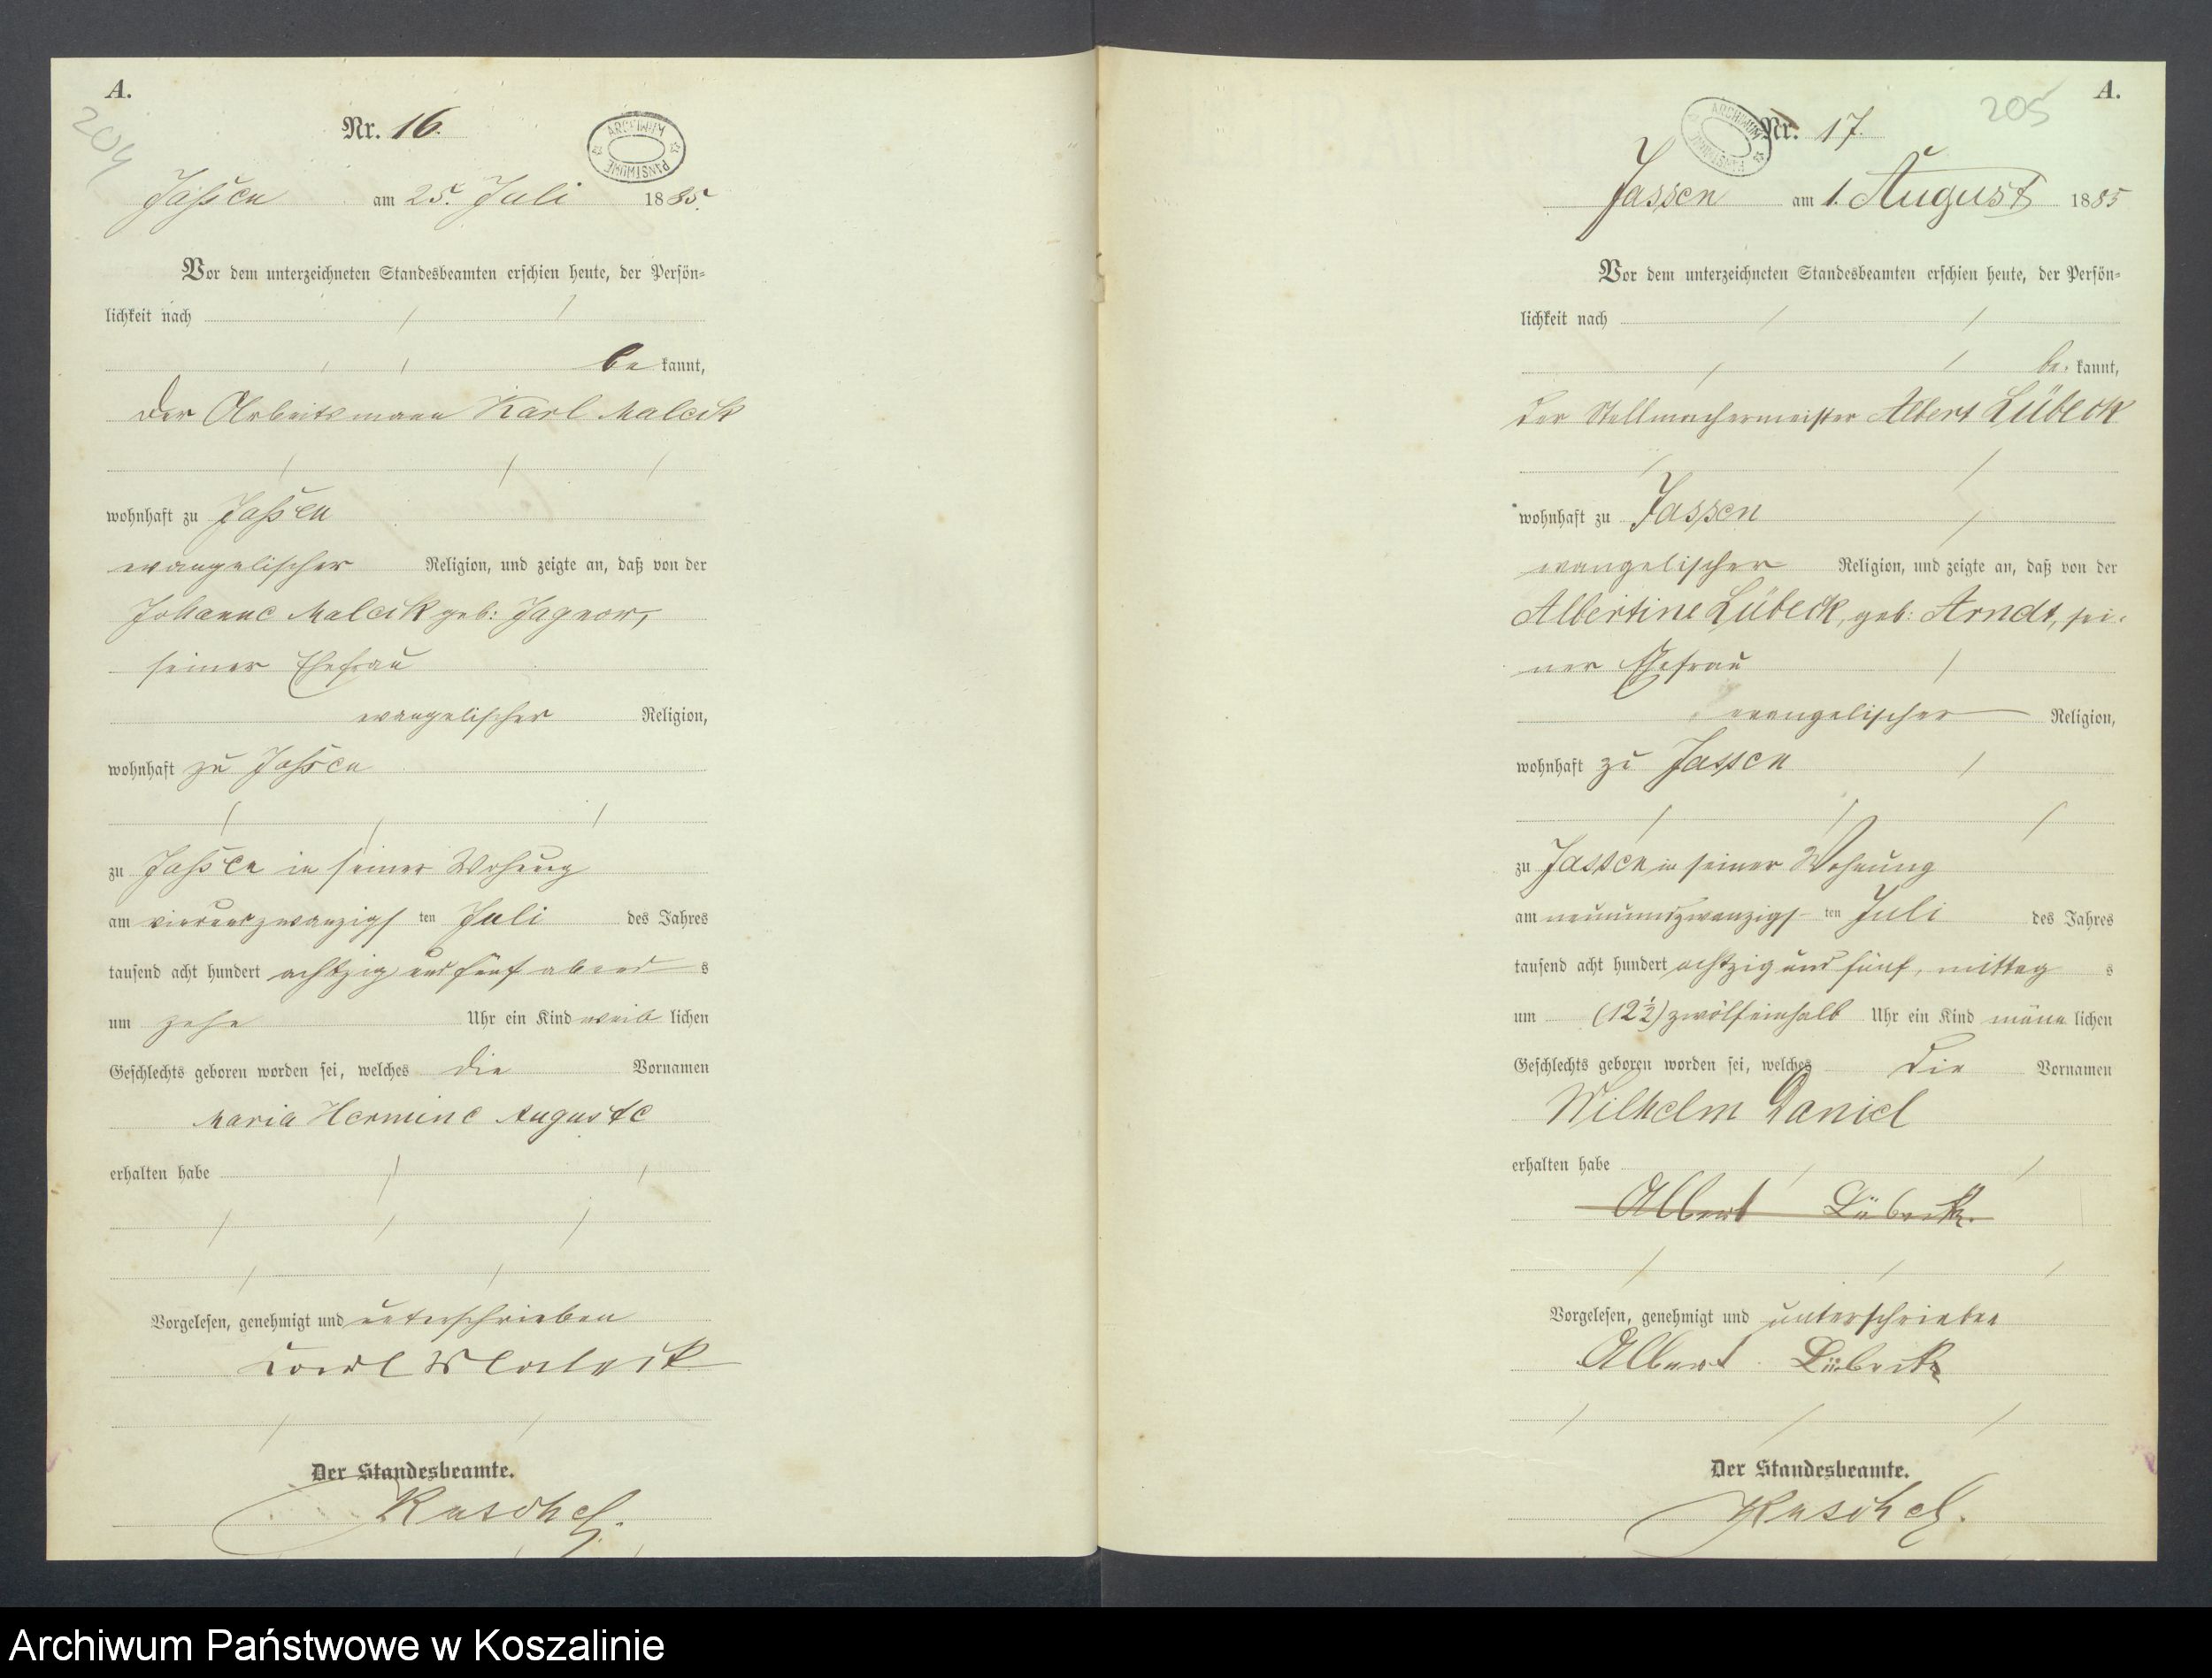 A.
204
Nr. 16.
ARCHIWUM PAŃSTWOWE
Jassen am 25. Juli 1885.
Vor dem unterzeichneten Standesbeamten erschien heute, der Persön=
lichkeit nach
be kannt,
der Arbeitsmann Karl Malcik
wohnhaft zu Jassen
evangelischer Religion, und zeigte an, daß von der
Johanne Malcik geb: Jagnow,
seiner Ehefrau
evangelischer Religion,
wohnhaft zu Jassen
zu Jassen in seiner Wohnung
am vierundzwanzigs ten Juli des Jahres
tausend acht hundert achtzig und fünf abend s
um zehn Uhr ein Kind weib lichen
Geschlechts geboren worden sei, welches die Vornamen
Maria Hermine Auguste
erhalten habe
Vorgelesen, genehmigt und unterschrieben
Der Standesbeamte.
A.
205
Nr. 17.
ARCHIWUM PAŃSTWOWE
Jassen am 1. August 1885
Vor dem unterzeichneten Standesbeamten erschien heute, der Persön=
lichkeit nach
be kannt,
der Stellmachermeister Albert Lübeck
wohnhaft zu Jassen
evangelischer Religion, und zeigte an, daß von der
Albertine Lübeck, geb: Arndt, sei-
ner Ehefrau
evangelischer Religion,
wohnhaft zu Jassen
zu Jassen in seiner Wohnung
am neunundzwanzigs ten Juli des Jahres
tausend acht hundert achtzig und fünf, mittag s
um (12½) zwölfeinhalb Uhr ein Kind männ lichen
Geschlechts geboren worden sei, welches die Vornamen
Wilhelm Daniel
erhalten habe
Albert Lübeck.
Vorgelesen, genehmigt und unterschrieben
Albert Lübeck
Der Standesbeamte.
Archiwum Państwowe w Koszalinie